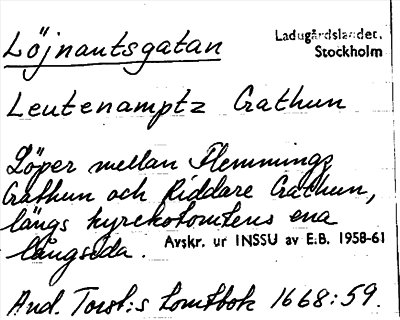 Löjnautsgatan
Ladugårdslandet.
Stockholm
Leutenamptz Grathun
Löper mellan Flemmings
Grathun och Riddare Grathun,
längs kyrkotomtens ena
långsida. Avskr. ur INSSU av E.B. 1958-61
And. Torst:s tomtbok 1668:59.